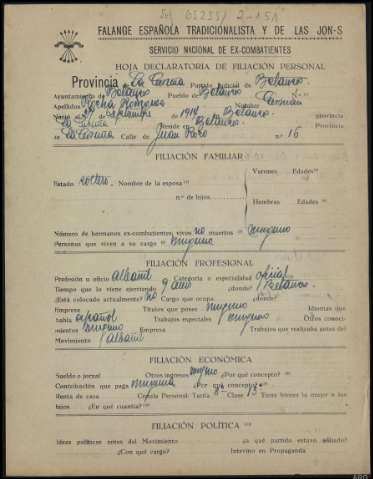 FALANGE ESPAÑOLA TRADICIONALISTA Y DE LAS JON-S
SERVICIO NACIONAL DE EX-COMBATIENTES
HOJA DECLARATORIA DE FILIACIÓN PERSONAL
Provincia de La Coruña Partido Judicial de Betanzos
Ayuntamiento de Betanzos Pueblo de Betanzos
Apellidos Nombre Germán
Nació de septiembre de 1914 Betanzos provincia
La Coruña Reside en Betanzos Provincia
de La Coruña Calle de Juan n.º 16
FILIACIÓN FAMILIAR
Varones Edades
Estado soltero Nombre de la esposa
n.º de hijos
Hembras Edades
Número de hermanos ex-combatientes, vivos no muertos ninguno
Personas que viven a su cargo ninguno
FILIACIÓN PROFESIONAL
Profesión u oficio albañil Categoría o especialidad oficial
Tiempo que la viene ejerciendo 9 años ¿donde? Betanzos
¿Está colocado actualmente? no Cargo que ocupa ¿donde?
Empresa Títulos que posee ninguno Idiomas que
habla español Trabajos especiales ninguno Otros conoci-
mientos ninguno Empresa Trabajos que realizaba antes del
Movimiento albañil
FILIACIÓN ECONÓMICA
Sueldo o jornal Otros ingresos ninguno ¿Por qué concepto?
Contribución que paga ninguna ¿Por qué concepto?
Renta de casa Cédula Personal Tarifa Clase 13ª Tiene bienes la mujer o los
hijos ¿En qué cuantía?
FILIACIÓN POLÍTICA
Ideas políticas antes del Movimiento ¿a qué partido estuvo afiliado?
¿Con qué cargo? Intervino en Propaganda